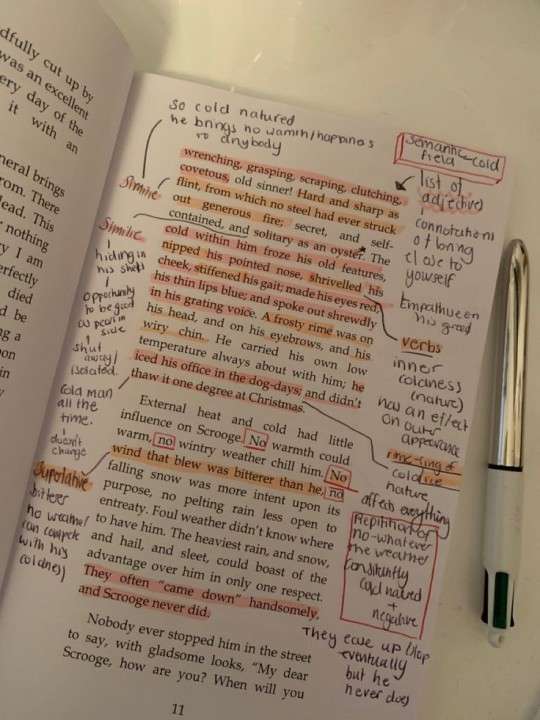 dfully cut up by
was an excellent
ery day of the
it with an
neral brings
rom. There
lead. This
r nothing
y I am
erfectly
died
d be
ng a
oon
in
y
so cold natured
he brings no warmth/happiness
to anybody
Semantic cold
field
wrenching, grasping, scraping, clutching,
covetous, old sinner! Hard and sharp as
flint, from which no steel had ever struck
out generous fire; secret, and self-
contained, and solitary as an oyster. The
cold within him froze his old features,
nipped his pointed nose, shrivelled his
cheek, stiffened his gait; made his eyes red,
his thin lips blue; and spoke out shrewdly
in his grating voice. A frosty rime was on
his head, and on his eyebrows, and his
wiry chin. He carried his own low
temperature always about with him; he
iced his office in the dog-days; and didn't
thaw it one degree at Christmas.
External heat and cold had little
influence on Scrooge. No warmth could
warm, no wintry weather chill him. No
wind that blew was bitterer than he, no
falling snow was more intent upon its
purpose, no pelting rain less open to
entreaty. Foul weather didn't know where
to have him. The heaviest rain, and snow,
and hail, and sleet, could boast of the
advantage over him in only one respect.
They often "came down" handsomely,
and Scrooge never did.
Nobody ever stopped him in the street
to say, with gladsome looks, "My dear
Scrooge, how are you? When will you
11
Simile
Simile
hiding in
his shell
opportunity
to be good
as pearl in
side
shut
away/
isolated.
Cold man
all the
time.
doesn't
change
Superlative
bitterer
no weather
can compete
with his
coldness
list of
adjectives
connotations
of bring
close to
yourself
on his greed
verbs
inner
coldness
(nature)
has an effect
on outer
appearance
rime-ring of
ice
cold
nature
affects everything
Repitition of
no-whatever
the weather
constantly
cold natured
+
negative
They ease up/stop
eventually
but he
never does